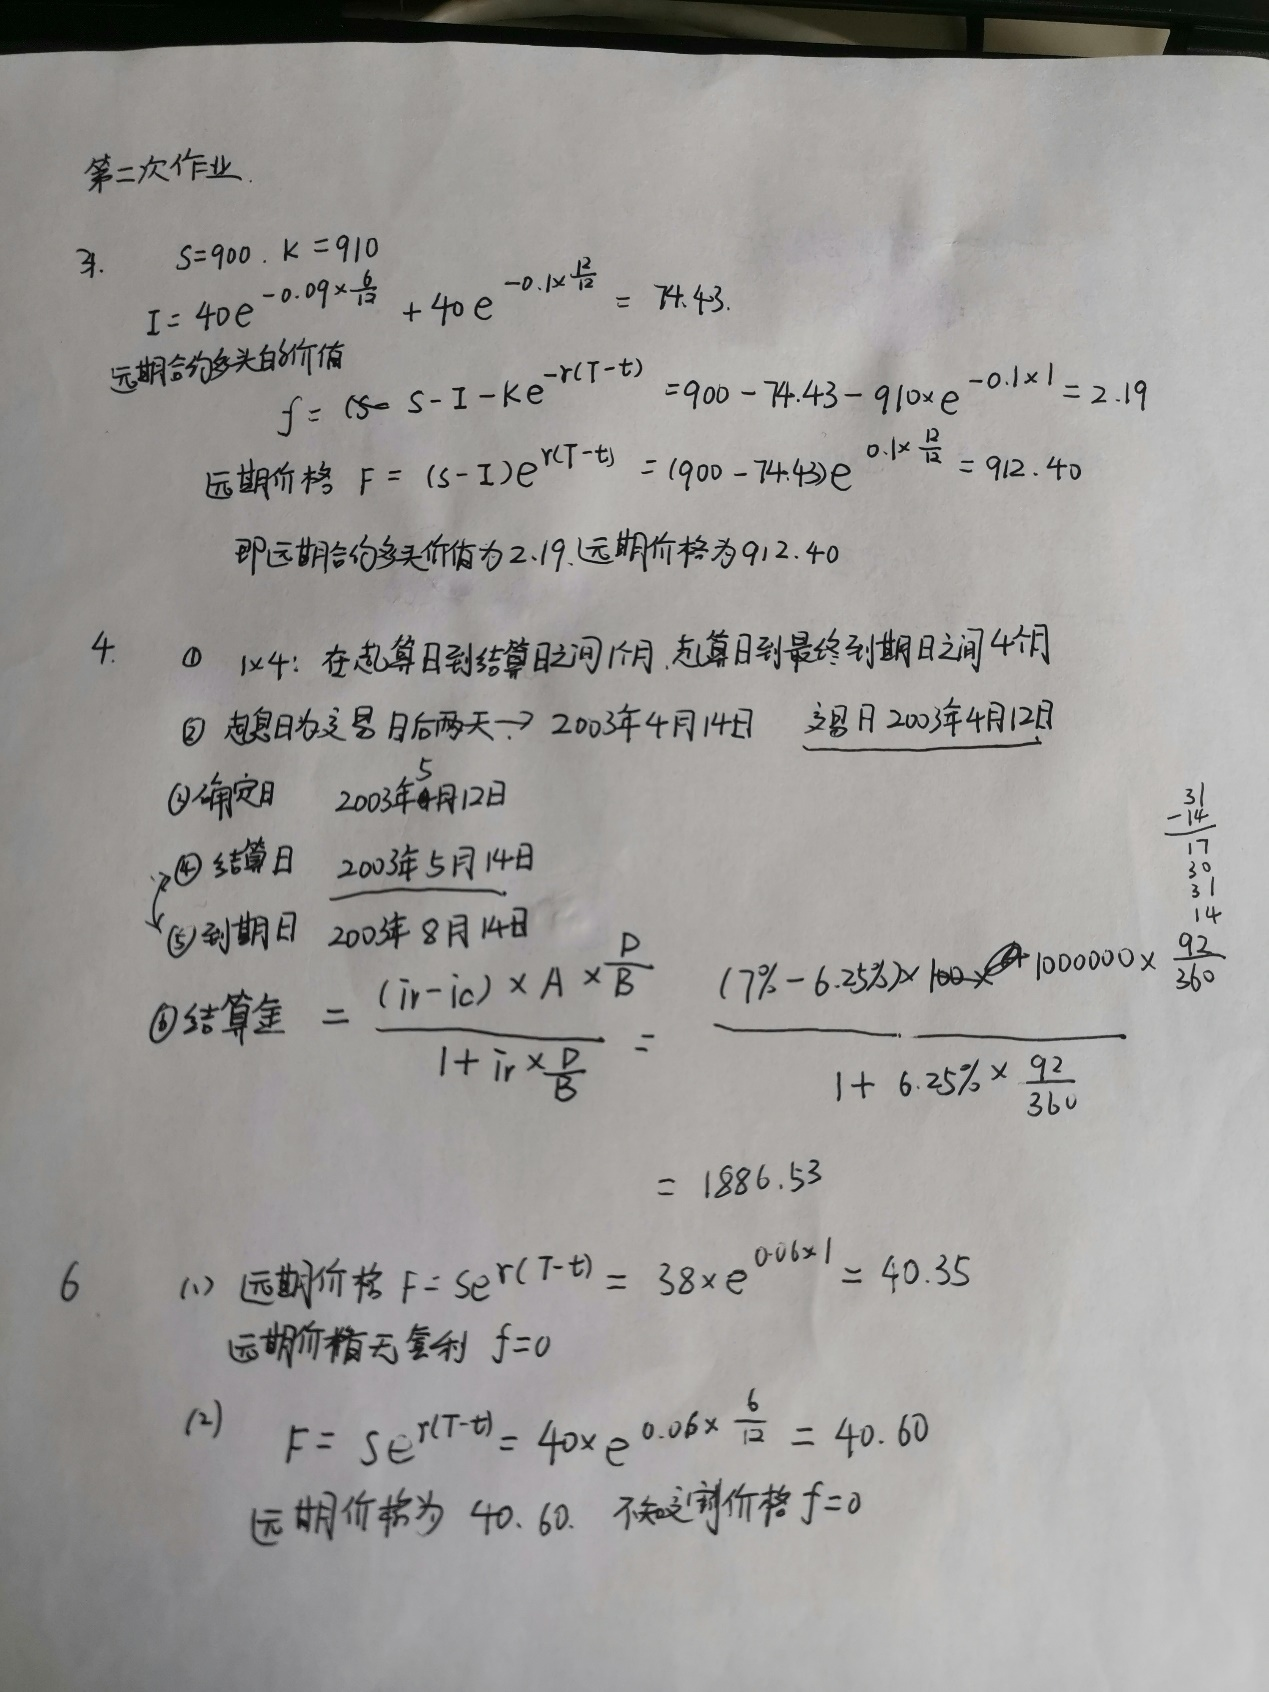 第二次作业.
3. S=900. K=910
I=40e^{-0.09×6/12}+40e^{-0.1×12/12}=74.43.
远期合约多头的价值
f= S-I-Ke^{-r(T-t)}=900-74.43-910×e^{-0.1×1}=2.19
远期价格 F=(S-I)e^{r(T-t)}=(900-74.43)e^{0.1×12/12}=912.40
即远期合约多头价值为2.19.远期价格为912.40
4. ① 1×4: 在起算日到结算日之间1个月.起算日到最终到期日之间4个月
② 起息日为交易日后两天→ 2003年4月14日 交易日2003年4月12日
③确定日 2003年5月12日
④结算日 2003年5月14日
⑤到期日 2003年8月14日
31
-14
17
30
31
14
92
⑥结算金 = \frac{(ir-ic)×A×\frac{D}{B}}{1+ir×\frac{D}{B}} = \frac{(7%-6.25%)×1000000×\frac{92}{360}}{1+6.25%×\frac{92}{360}}
=1886.53
6 (1) 远期价格F=Se^{r(T-t)}=38×e^{0.06×1}=40.35
远期价格无套利 f=0
(2) F=Se^{r(T-t)}=40×e^{0.06×6/12}=40.60
远期价格为 40.60. 不知交割价格f=0